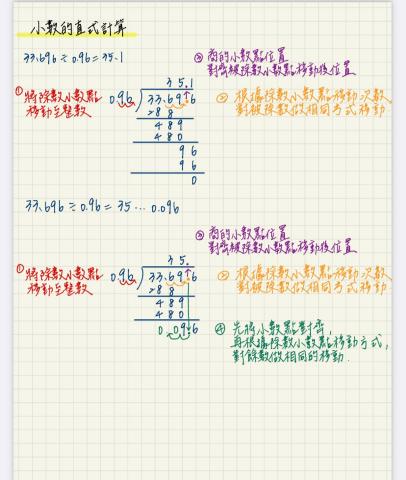 小數的直式計算
33.696 ÷ 0.96 = 35.1
③ 商的小數點位置
對齊被除數小數點移動後位置
① 將除數小數點
移動至整數
35.1
0.96
33.696
② 根據除數小數點移動次數
對被除數做相同方式移動
288
489
480
96
96
0
33.696 ÷ 0.96 = 35 ... 0.096
③ 商的小數點位置
對齊被除數小數點移動後位置
① 將除數小數點
移動至整數
35.
0.96
33.696
② 根據除數小數點移動次數
對被除數做相同方式移動
288
489
480
0.096
④ 先將小數點對齊,
再根據除數小數點移動方式,
對餘數做相同的移動.